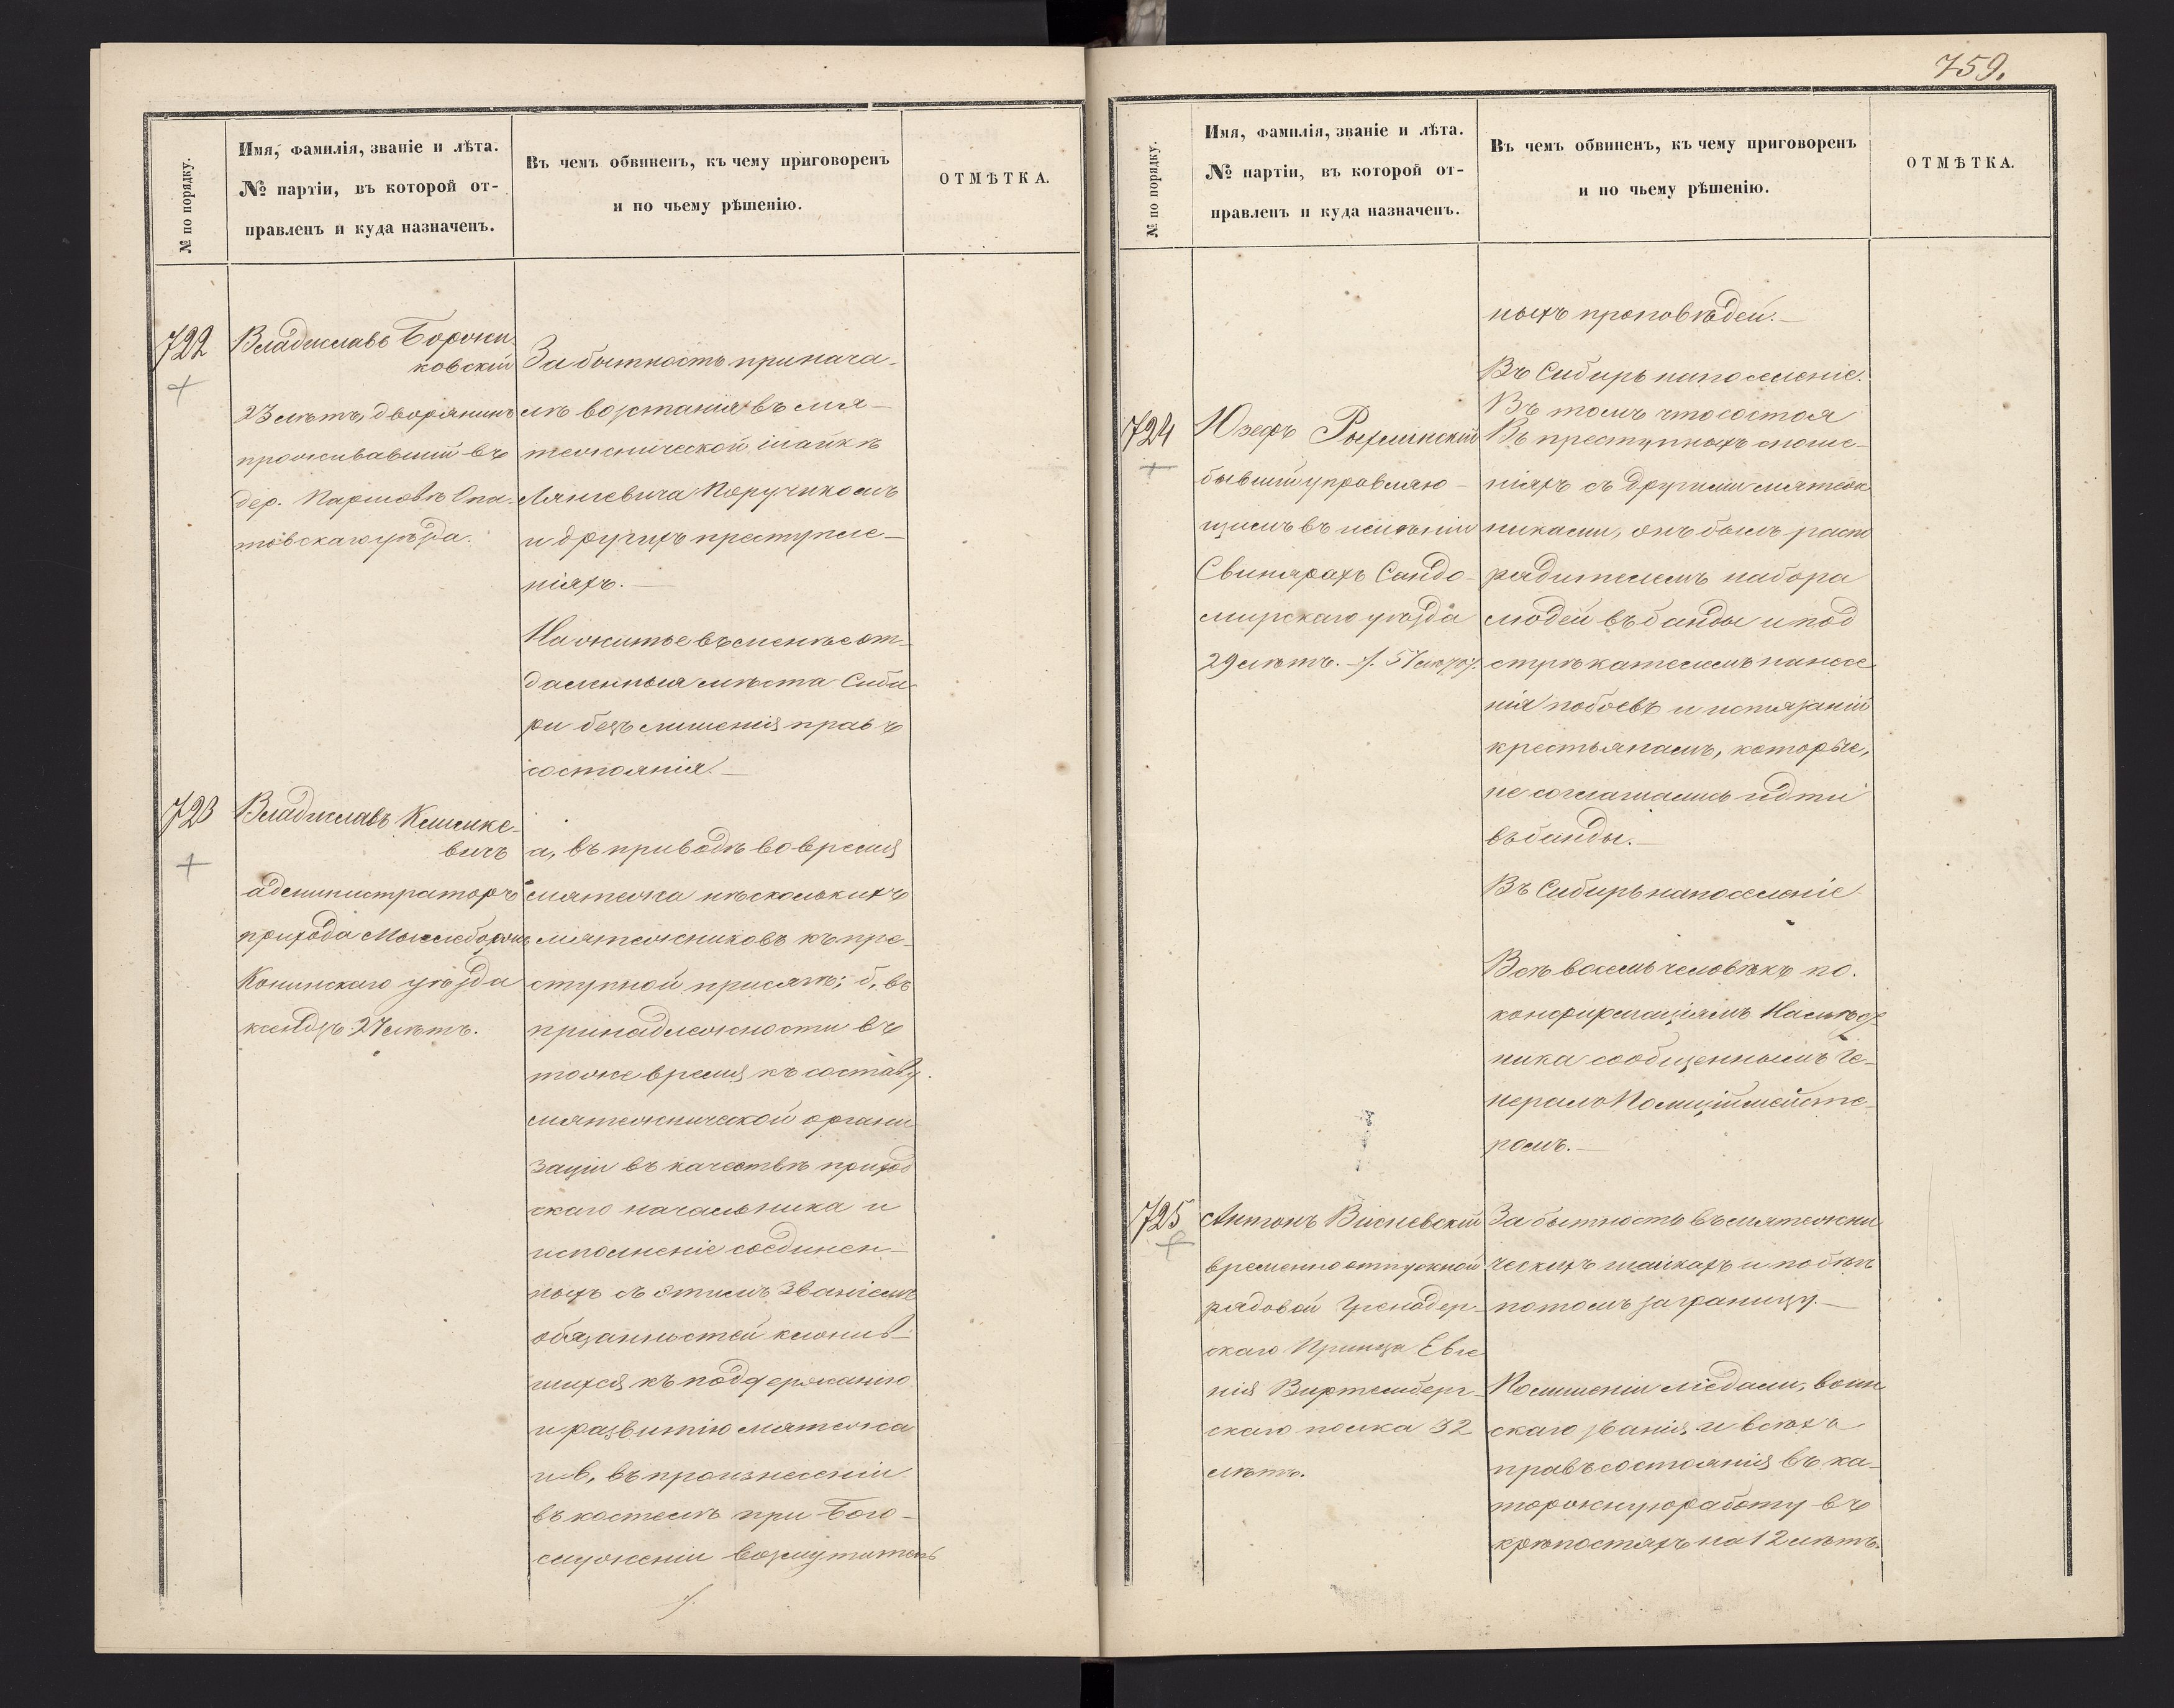 № по порядку.
Имя, фамилія, званіе и лѣта.
№ партіи, въ которой от-
правленъ и куда назначенъ.
Въ чемъ обвиненъ, къ чему приговоренъ
и по чьему рѣшенію.
ОТМѢТКА.
722
Владиславъ
ковскій
23 лѣтъ, дворянинъ
проживавшій въ
дер. Опа-
товскаго уѣзда.
За бытность при нача-
лѣ возстанія въ мя-
тежнической шайкѣ
Лянгевича Поручикомъ
и другихъ преступле-
ніяхъ.—
На житье въ менѣе от-
даленныя мѣста Сиби
ри безъ лишенія правъ
состоянія.—
723
Владиславъ Климке-
вичъ
администраторъ
прихода
Конинскаго уѣзда
ксендзъ 27 лѣтъ.
а, въ приводѣ во время
мятежа нѣсколькихъ
мятежниковъ къ пре-
ступной присягѣ; б, въ
принадлежности въ
тоже время къ составу
мятежнической органи
заціи въ качествѣ приход
скаго начальника и
исполненіе соединен-
ныхъ съ этимъ званіемъ
обязанностей клонив-
шихся къ поддержанію
и развитію мятежа
и в, въ произнесеніи
въ костелѣ при Бого-
служеніи возмутитель
759.
№ по порядку.
Имя, фамилія, званіе и лѣта.
№ партіи, въ которой от-
правленъ и куда назначенъ.
Въ чемъ обвиненъ, къ чему приговоренъ
и по чьему рѣшенію.
ОТМѢТКА.
ныхъ проповѣдей.—
Въ Сибирь на поселеніе.
724
Юзефъ Рыхлинскій
бывшій управляю-
щимъ въ имѣніи
Свинярахъ Сандо-
мирскаго уѣзда
29 лѣтъ.
Въ томъ что состоя
въ преступныхъ сноше-
ніяхъ съ другими мятеж
никами, онъ былъ распо
рядителемъ набора
людей въ банды и под
стрѣкателемъ нанесе
нія побоевъ и истязаній
крестьянамъ, которые,
не соглашались идти
въ банды.—
Въ Сибирь на поселеніе
Всѣ восемь человѣкъ по
конфирмаціямъ Намѣст
ника сообщеннымъ Ге-
нералъ Полиціймейсте-
ромъ.—
725
Антонъ Висневскій
временно отпускной
рядовой Гренадер-
скаго Принца Евге
нія Виртемберг-
скаго полка 32
лѣтъ.
За бытность въ мятежни
ческихъ шайкахъ и побѣгъ
потомъ за границу.—
По лишеніи медали, воин
скаго званія и всѣхъ
правъ состоянія въ ка-
торжную работу въ
крѣпостяхъ на 12 лѣтъ.